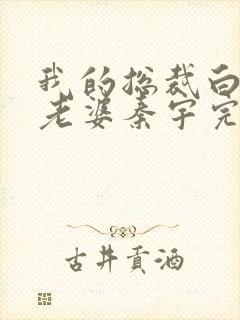 我的总裁白
老婆秦宇完
古井贡酒